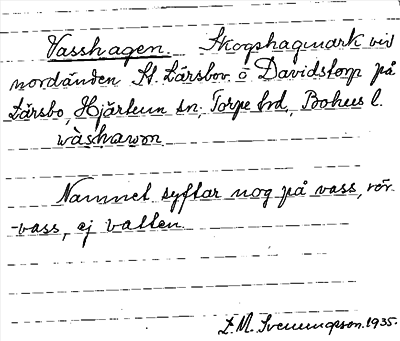 Vasshagen. Skogshagmark vid
nordänden St. Lärsbov. o Davidstorp på
Lärsbo, Hjärtum sn, Torpe hd, Bohus l.
wàshawon
Namnet syftar nog på vass, rör-
-vass, ej vatten.
L. M. Svenungsson. 1935.